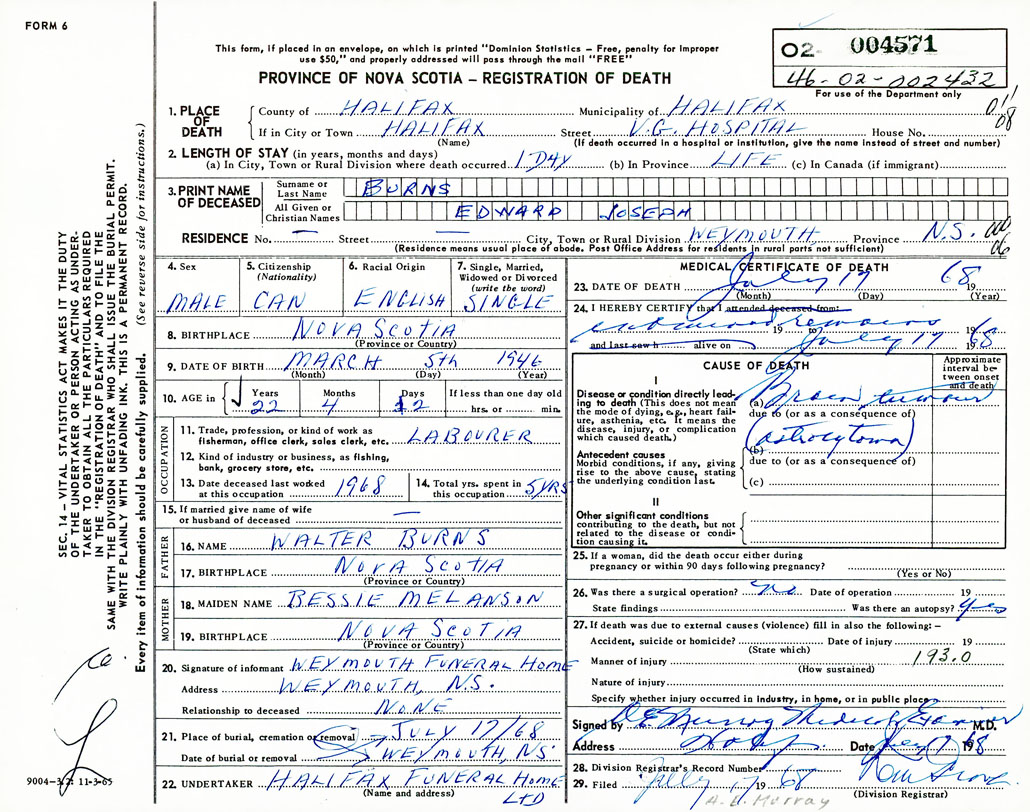 FORM 6
This form, if placed in an envelope, on which is printed "Dominion Statistics – Free, penalty for improper
use $50," and properly addressed will pass through the mail "FREE"
PROVINCE OF NOVA SCOTIA – REGISTRATION OF DEATH
02- 004571
46-02-002432
For use of the Department only
1. PLACE OF DEATH
County of HALIFAX Municipality of HALIFAX 011
If in City or Town HALIFAX Street V.G. HOSPITAL House No. 08
(Name) (If death occurred in a hospital or institution, give the name instead of street and number)
2. LENGTH OF STAY (in years, months and days)
(a) In City, Town or Rural Division where death occurred 1 DAY (b) In Province LIFE (c) In Canada (if immigrant)
3. PRINT NAME OF DECEASED
Surname or Last Name BURNS
All Given or Christian Names EDWARD JOSEPH
RESIDENCE No. — Street — City, Town or Rural Division WEYMOUTH Province N.S. 06
(Residence means usual place of abode. Post Office Address for residents in rural parts not sufficient)
4. Sex MALE
5. Citizenship (Nationality) CAN
6. Racial Origin ENGLISH
7. Single, Married, Widowed or Divorced (write the word) SINGLE
8. BIRTHPLACE NOVA SCOTIA
(Province or Country)
9. DATE OF BIRTH MARCH 5th 1946
(Month) (Day) (Year)
10. AGE in Years 22 Months 4 Days 12 If less than one day old hrs. or min.
OCCUPATION
11. Trade, profession, or kind of work as
fisherman, office clerk, sales clerk, etc. LABOURER
12. Kind of industry or business, as fishing,
bank, grocery store, etc.
13. Date deceased last worked
at this occupation 1968
14. Total yrs. spent in
this occupation 5 YRS
15. If married give name of wife
or husband of deceased —
FATHER
16. NAME WALTER BURNS
17. BIRTHPLACE NOVA SCOTIA
(Province or Country)
MOTHER
18. MAIDEN NAME BESSIE MELANSON
19. BIRTHPLACE NOVA SCOTIA
(Province or Country)
20. Signature of informant WEYMOUTH FUNERAL HOME
Address WEYMOUTH, N.S.
Relationship to deceased NONE
21. Place of burial, cremation or removal JULY 17/68
Date of burial or removal WEYMOUTH, NS
22. UNDERTAKER HALIFAX FUNERAL HOME
(Name and address) LTD
MEDICAL CERTIFICATE OF DEATH
23. DATE OF DEATH July 17 1968
(Month) (Day) (Year)
24. I HEREBY CERTIFY that I attended deceased from:
19 to 19
and last saw h alive on July 17 1968
CAUSE OF DEATH
Approximate interval between onset and death
I
Disease or condition directly leading to death (This does not mean
the mode of dying, e.g., heart failure, asthenia, etc. It means the
disease, injury, or complication
which caused death.)
(a) Brain tumour
due to (or as a consequence of)
(b) (astrocytoma)
due to (or as a consequence of)
(c)
Antecedent causes
Morbid conditions, if any, giving
rise to the above cause, stating
the underlying condition last.
II
Other significant conditions
contributing to the death, but not
related to the disease or condition causing it.
25. If a woman, did the death occur either during
pregnancy or within 90 days following pregnancy?
(Yes or No)
26. Was there a surgical operation? no Date of operation 19
State findings Was there an autopsy? yes
27. If death was due to external causes (violence) fill in also the following: –
Accident, suicide or homicide? Date of injury 19
(State which)
Manner of injury 193.0
(How sustained)
Nature of injury
Specify whether injury occurred in industry, in home, or in public place
Signed by Murray Medical Examiner M.D.
Address Date 1968
28. Division Registrar's Record Number
29. Filed July 17 1968
(Division Registrar)
A. E. Murray
SEC. 14 – VITAL STATISTICS ACT MAKES IT THE DUTY
OF THE UNDERTAKER OR PERSON ACTING AS UNDERTAKER TO OBTAIN ALL THE PARTICULARS REQUIRED
IN THE "REGISTRATION OF DEATH" AND TO FILE THE
SAME WITH THE DIVISION REGISTRAR WHO SHALL ISSUE THE BURIAL PERMIT.
WRITE PLAINLY WITH UNFADING INK. THIS IS A PERMANENT RECORD.
Every item of information should be carefully supplied. (See reverse side for instructions.)
9004-3 11-3-65